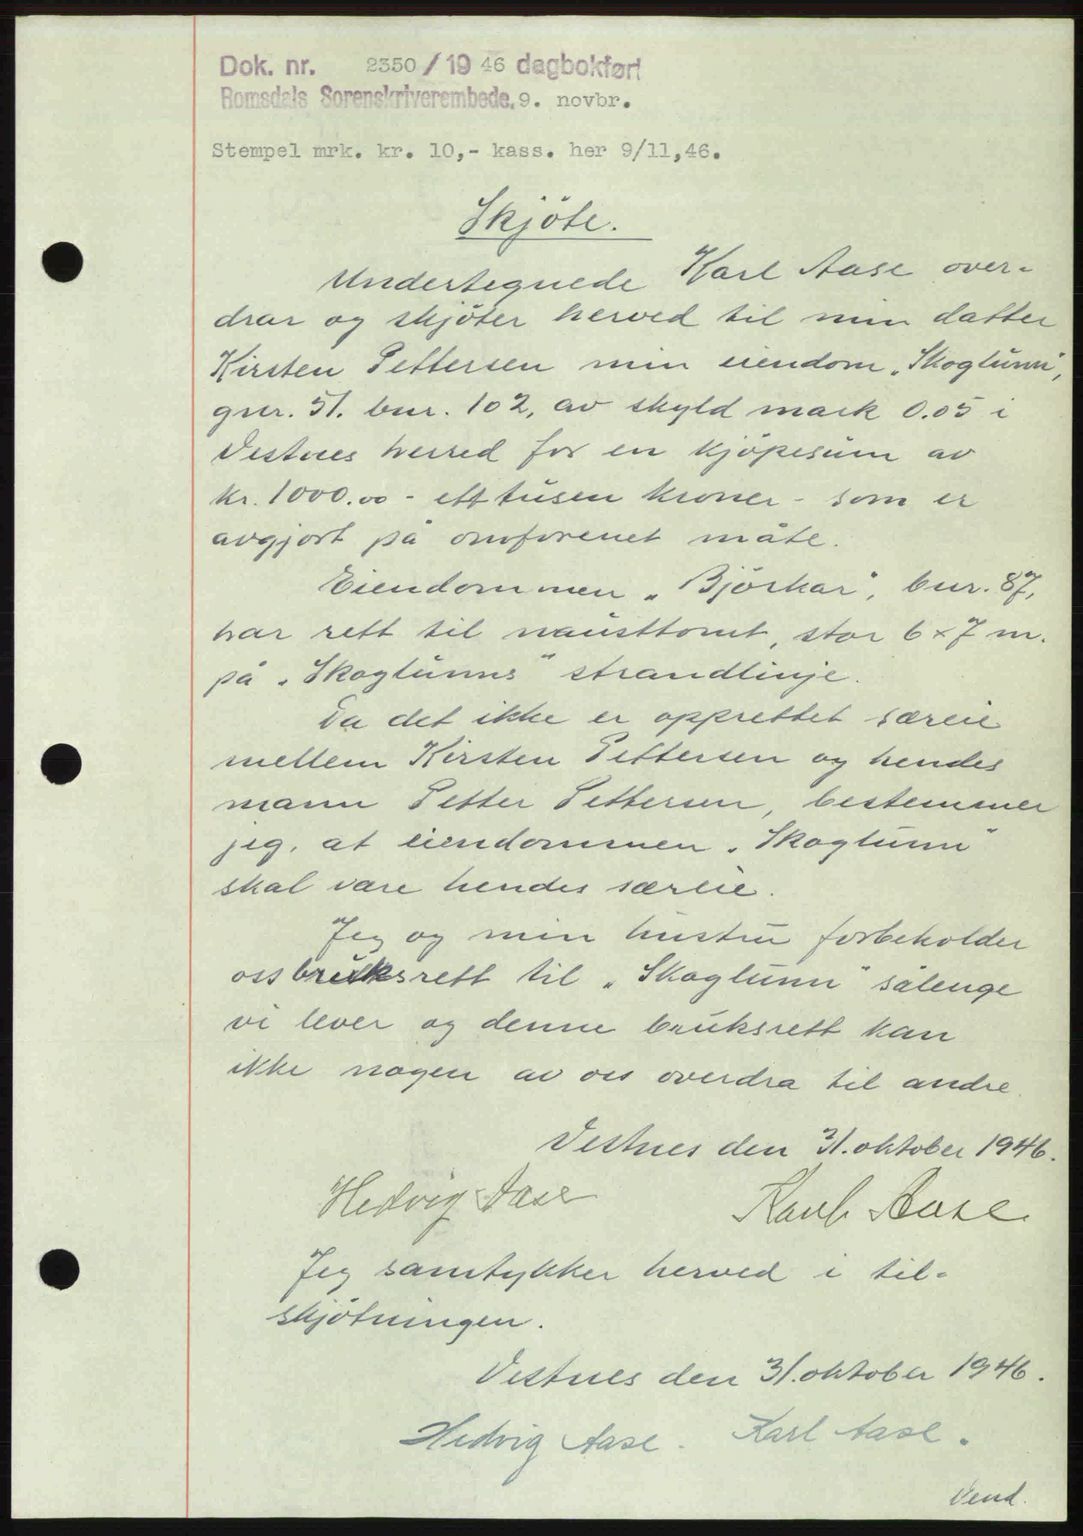 Dok. nr. 2350 / 19 46 dagbokført
Romsdals Sorenskriverembede, 9. novbr.
Stempel mrk. kr. 10,- kass. her 9/11,46.
Skjöte.
Undertegnede Karl Aase over-
drar og skjöter herved til min datter
Kirsten Pettersen min eiendom „Skoglunn",
gnr. 51. bnr. 102, av skyld mark 0.05 i
Vestnes herred for en kjöpesum av
kr. 1000.00 - ett tusen kroner - som er
avgjort på omforenet måte.
Eiendommen „Björkar", bnr. 87,
har rett til nausttomt, stor 6 x 7 m.
på „Skoglunns" strandlinje.
Da det ikke er opprettet særeie
mellem Kirsten Pettersen og hendes
mann Petter Pettersen, bestemmer
jeg, at eiendommen „Skoglunn"
skal være hendes særeie.
Jeg og min hustru forbeholder
oss bruksrett til „Skoglunn" sålenge
vi lever og denne bruksrett kan
ikke nogen av oss overdra til andre.
Vestnes den 31. oktober 1946.
Hedvig Aase Karl Aase.
Jeg samtykker herved i til-
skjötningen.
Vestnes den 31. oktober 1946.
Hedvig Aase. Karl Aase.
Vend.